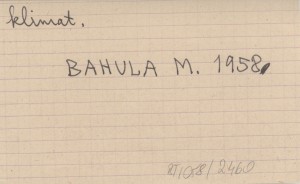 klimat.
BAHULA M. 1958
/2460